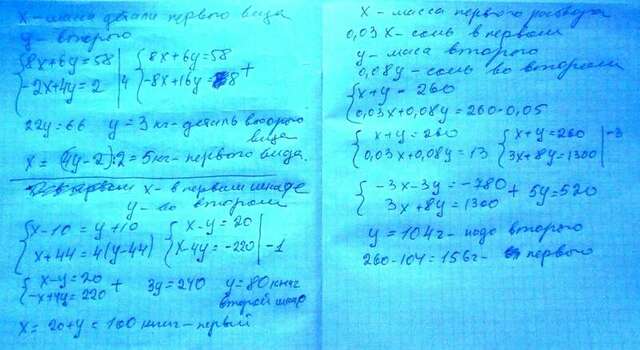 x - масса детали первого вида
y - второго
{8x+6y=58 | {8x+6y=58
{-2x+4y=2 | 4 {-8x+16y=8 +
22y=66 y=3 кг - деталь второго
вида
x = (4y-2):2=5кг - первого вида.
x - в первом шкафе
y - во втором
{x-10=y+10 {x-y=20
{x+44=4(y-44) {x-4y=-220 | -1
{x-y=20
{-x+4y=220 + 3y=240 y=80 книг
второй шкаф
x=20+y=100 книг - первый
x - масса первого раствора
0,03x - соль в первом
y - масса второго
0,08y - соль во втором
{x+y=260
{0,03x+0,08y=260·0,05
{x+y=260 {x+y=260 | -3
{0,03x+0,08y=13 {3x+8y=1300
{-3x-3y=-780 + 5y=520
{3x+8y=1300
y=104г - надо второго
260-104=156г - первого